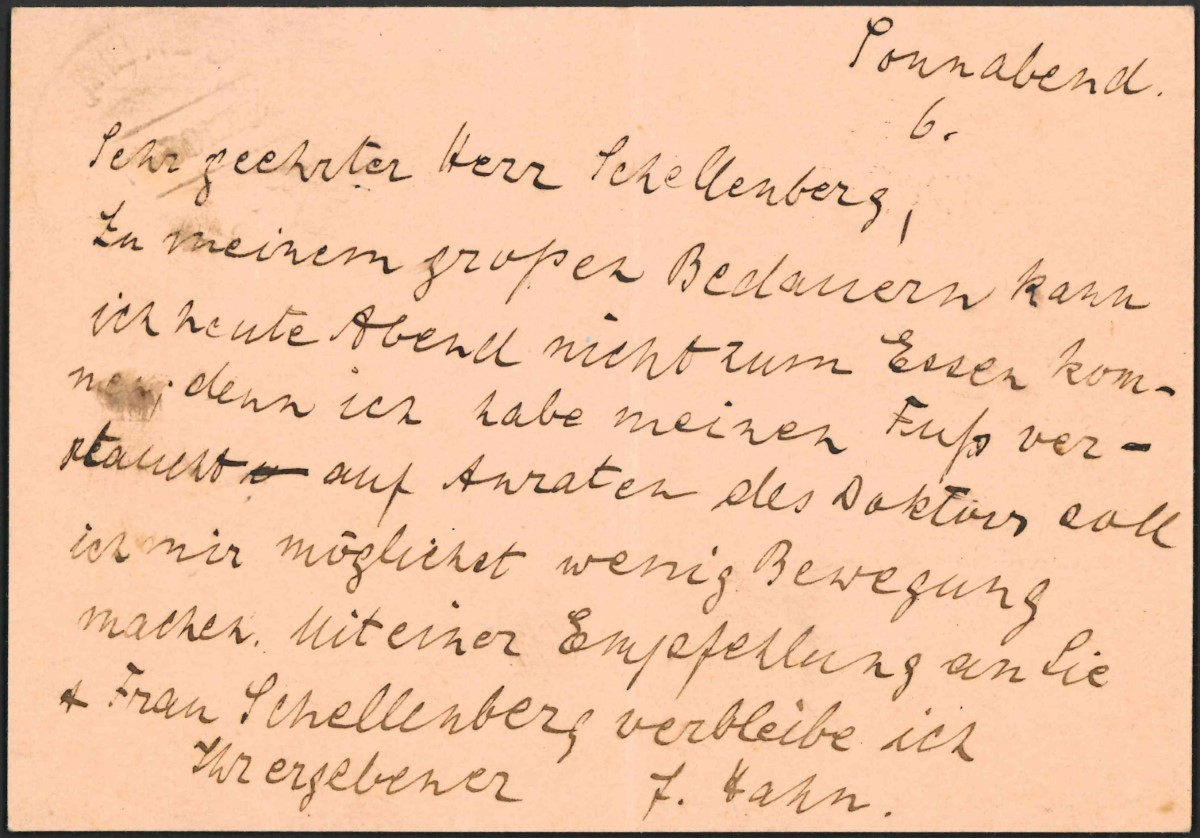 Sonnabend.
6.
Sehr geehrter Herr Schellenberg,
Zu meinem großen Bedauern kann
ich heute Abend nicht zum Essen kom-
men, denn ich habe meinen Fuß ver-
staucht auf Anraten des Doktors soll
ich mir möglichst wenig Bewegung
machen. Mit einer Empfehlung an Sie
+ Frau Schellenberg verbleibe ich
Ihr ergebener F. Hahn.